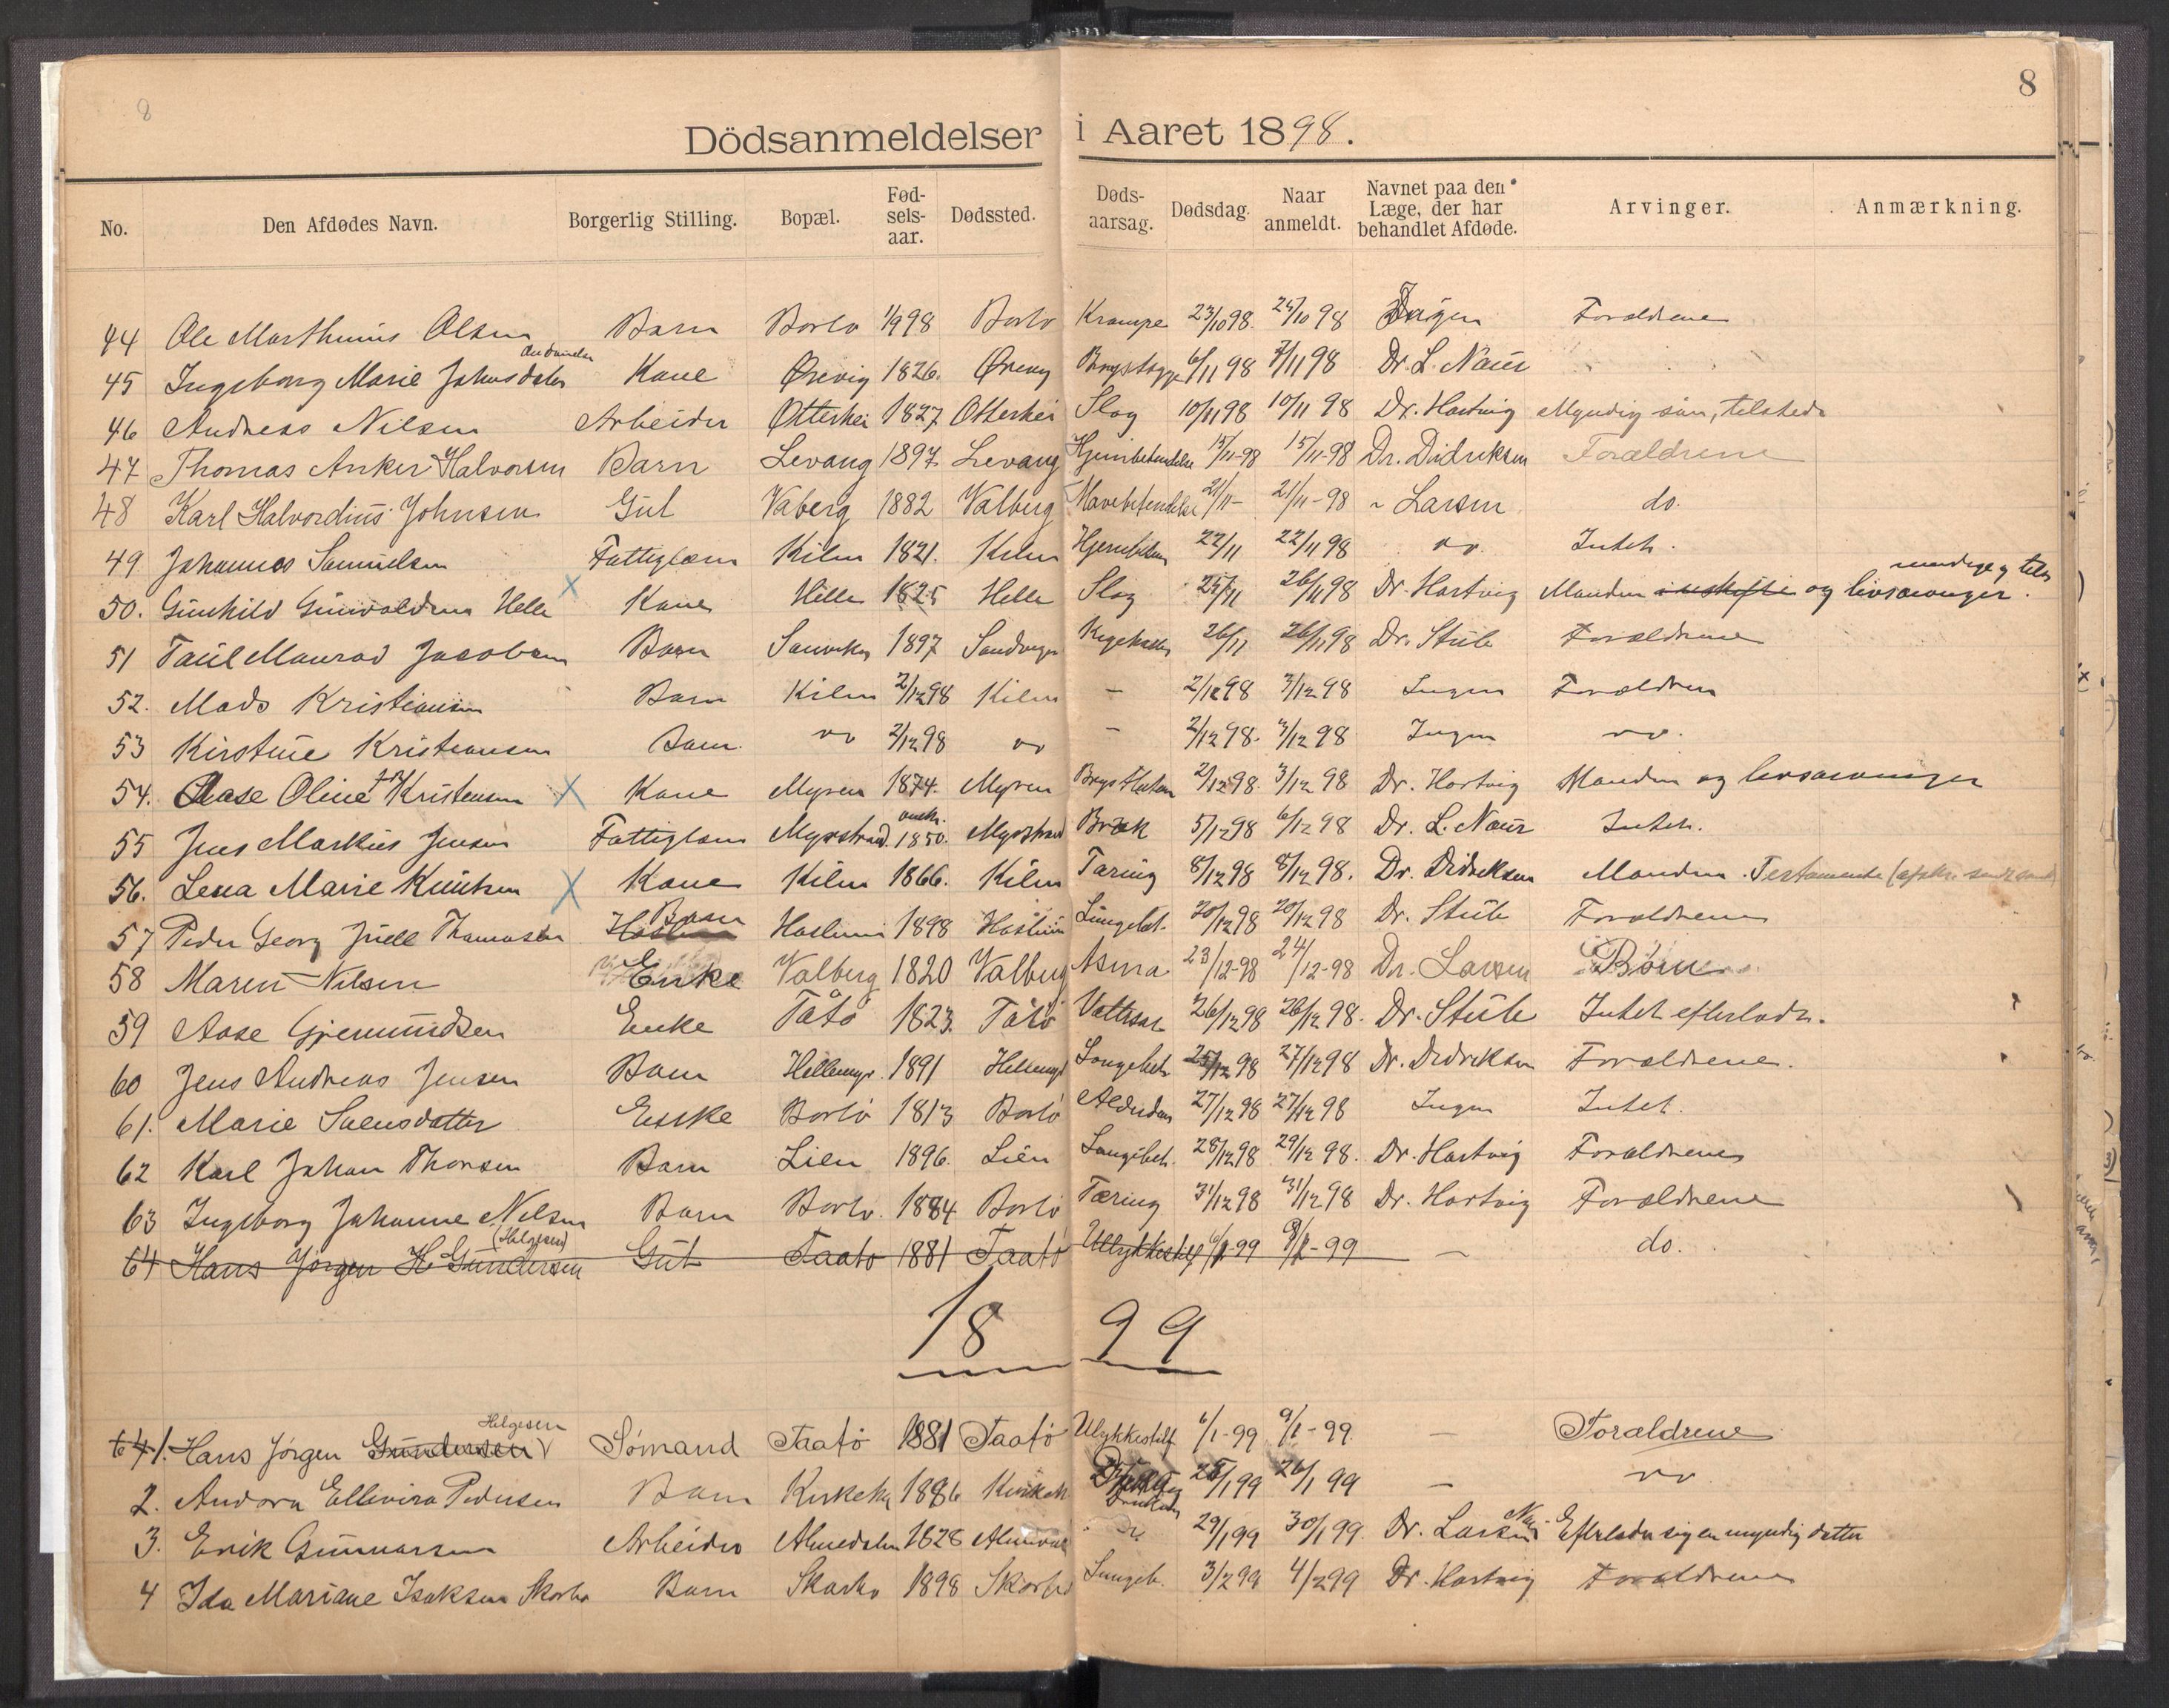 8
8
Dödsanmeldelser i Aaret 1898.
No. Den Afdødes Navn. Borgerlig Stilling. Bopæl. Fød-sels-aar. Dødssted. Døds-aarsag. Dødsdag. Naar anmeldt. Navnet paa den Læge, der har behandlet Afdøde. Arvinger. Anmærkning.
44 Ole Marthinius Olsen Barn Borlö 1/9 98 Borlö Krampe 23/10 98. 24/10 98 Ingen Forældrene
45 Ingeborg Marie Johnsdatter Kone Ørevig 1826. Ørevig 6/11 98 7/11 98 Dr. L. Naur
46 Andreas Nilsen Arbeider Otterhei 1827 Otterhei Slag 10/11 98 10/11 98 Dr. Hartvig Myndig sön, tilstede
47 Thomas Anker Halvorsen Barn Levang 1897 Levang Hjernebetændelse 15/11-98 15/11-98 Dr. Didriksen Forældrene
48 Karl Halvordius Johnsen Gut Vaberg 1882 Valberg Mavebetendelse 21/11- 21/11-98 " Larsen do.
49 Johannes Samuelsen Fattiglem Kilen 1821. Kilen 22/11 22/11 98 do. Intet.
50. Gunhild Gunvaldsen Helle x Kone Helle 1825 Helle Slag 25/11 26/11 98 Dr. Hartvig Manden i uskifte og livsarvinger.
51 Taul Manrad Jacobsen Barn Sanviken 1897 Sandvigen Kighoste 26/11 26/11 98 Dr. Stub Forældrene
52. Mads Kristiansen Barn Kilen 2/12 98 Kilen - 2/12 98 3/12 98 Ingen Forældrene
53 Kirstine Kristiansen Barn. do 2/12 98 do - 2/12 98. 3/12 98 Ingen do.
54. Aase Oline Kristensen x Kone Myren 1874. Myren 2/12 98. 3/12 98 Dr. Hartvig Manden og livsarvinger
55 Jens Markus Jensen Fattiglem Myrstrand 1850. Myrstrand Brok 5/12 98 6/12 98 Dr. L. Naur Intet.
56. Lena Marie Knutsen x Kone Kilen 1866. Kilen Tæring 8/12 98 8/12 98. Dr. Didriksen Manden. Testamente
57 Peder Georg Juell Thomassen Barn Haslum 1898 Haslum Lungebet. 20/12 98 20/12 98 Dr. Stub Forældrene
58 Maren Nilsen Enke Valberg 1820 Valberg Asma 23/12-98 24/12-98 Dr. Larsen Børn
59 Aase Gjermundsen Enke Tåtö 1823. Tåtö Vattersot 26/12 98 26/12 98. Dr. Stub Intet efterladt.
60 Jens Andreas Jensen Barn Hellemyr. 1891 Hellemyr Lungebet. 25/12 98 27/12 98 Dr. Didriksen Forældrene.
61. Marie Svensdatter Enke Borlö 1813 Borlö Alderdom 27/12 98 27/12 98 Ingen Intet.
62 Karl Johan Thorsen Barn Lien 1896. Lien Lungebet. 28/12 98 29/12 98. Dr. Hartvig Forældrene
63 Ingeborg Johanne Nilsen Barn Borlö. 1884 Borlö Tæring 31/12 98 31/12 98 Dr. Hartvig Forældrene
(Helgesen)
64 Hans Jörgen H Gundersen Gut Taatö 1881 Taatö Ulykkestilf 6/1-99 9/1-99 - do.
1899
Helgesen
64 1. Hans Jörgen Gundersen Sömand Taatö 1881 Taatö Ulykkestilf 6/1-99 9/1-99. - Forældrene
2. Andora Ellevira Pedersen Barn 1886 25/1 99 26/1 99 - do
3. Erik Gunnarsen Arbeider Almedalen 1828 29/1 99 30/1 99. Dr. Larsen Efterlader sig en myndig datter
4 Ida Mariane Isaksen Skorbo Barn Skorbo 1898 Skorbo Lungeb. 3/2 99 4/2 99 Dr. Hartvig Forældrene